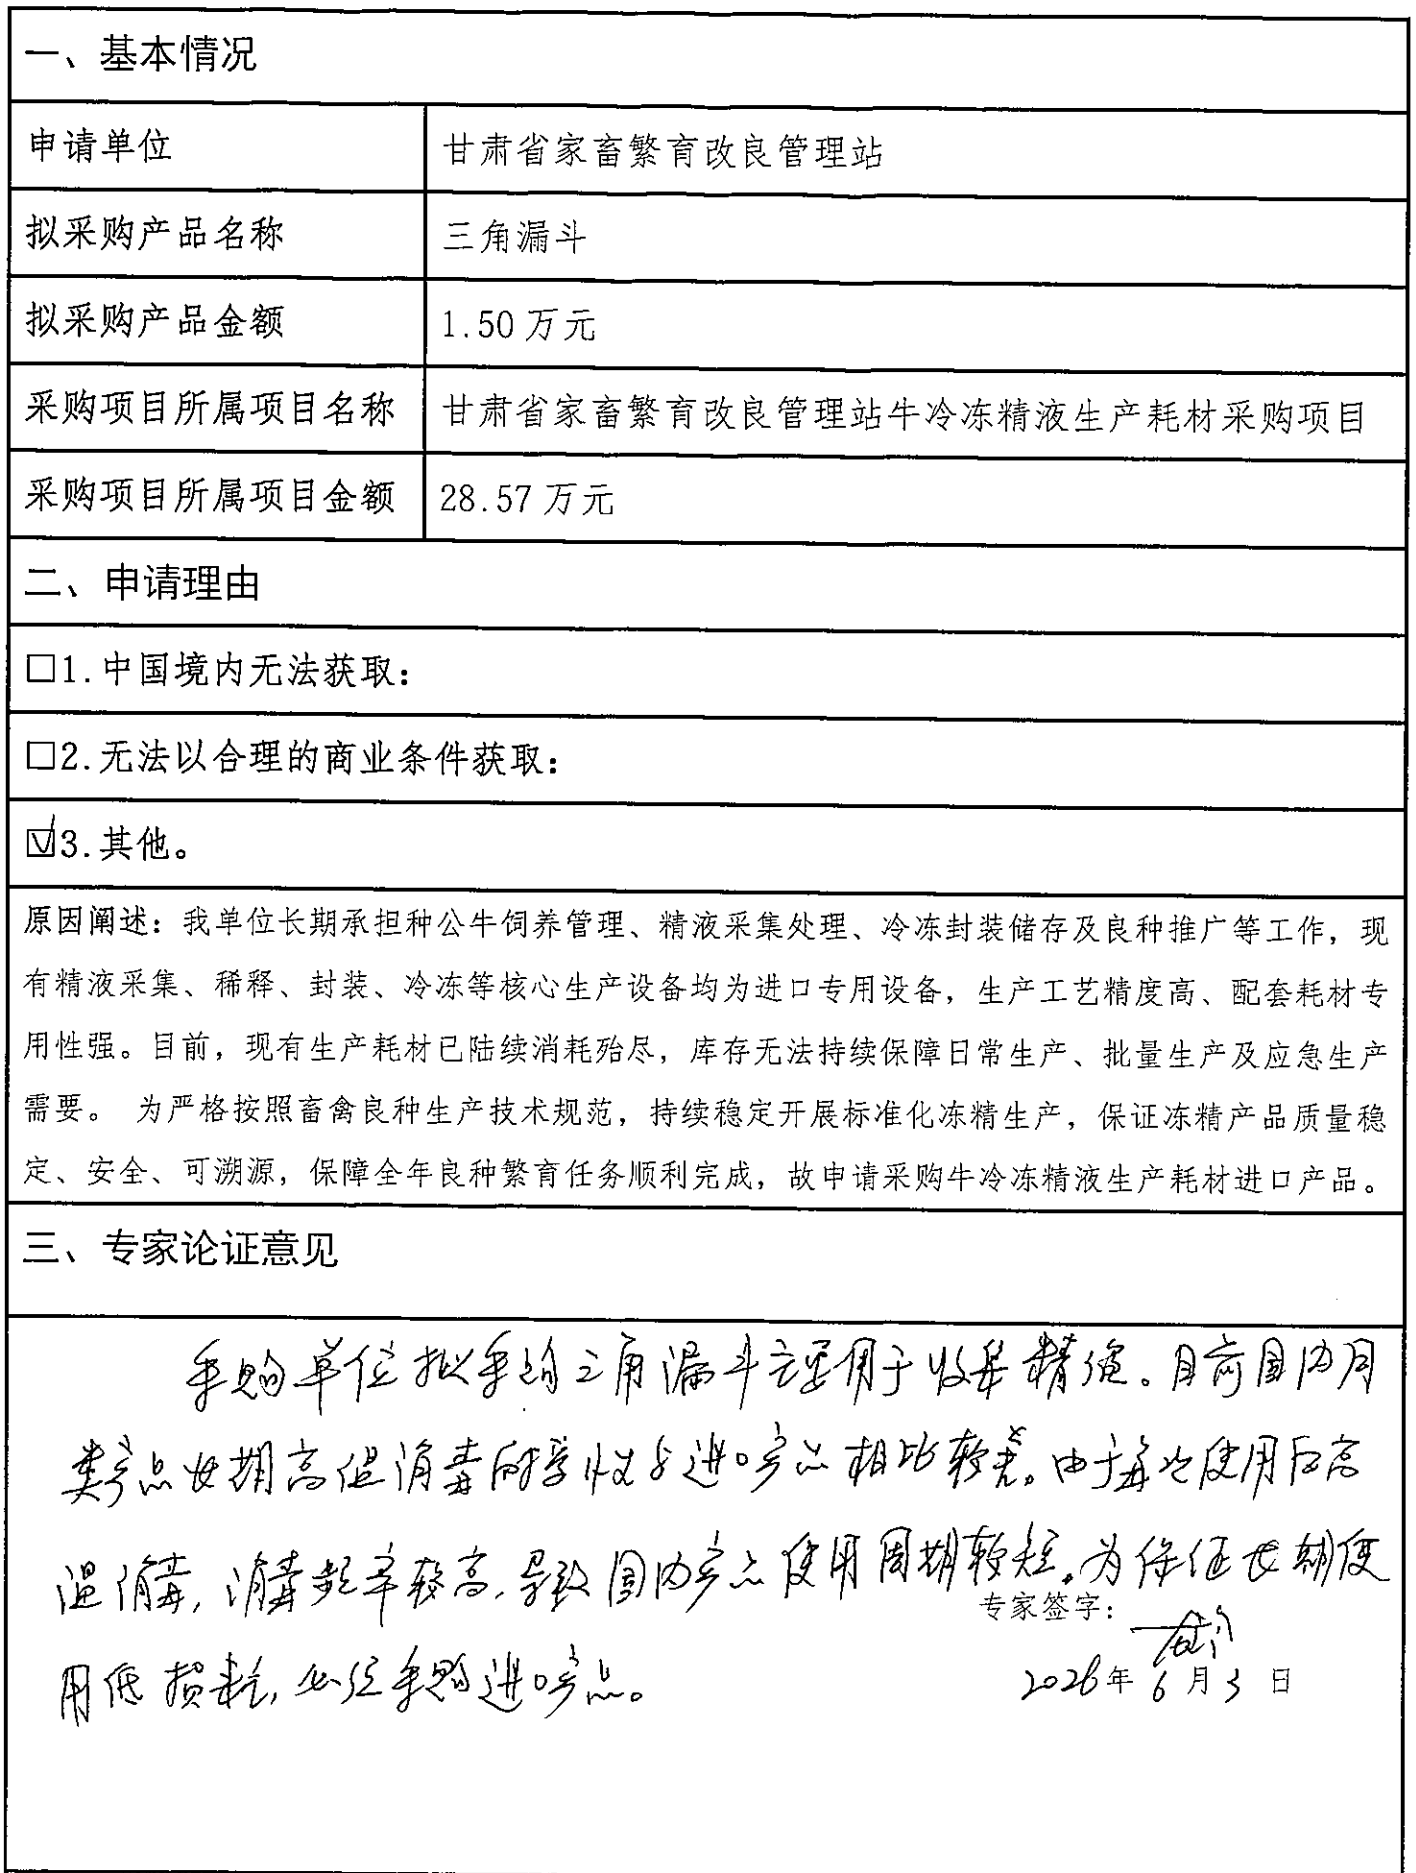 一、基本情况
申请单位 甘肃省家畜繁育改良管理站
拟采购产品名称 三角漏斗
拟采购产品金额 1.50万元
采购项目所属项目名称 甘肃省家畜繁育改良管理站牛冷冻精液生产耗材采购项目
采购项目所属项目金额 28.57万元
二、申请理由
□1.中国境内无法获取：
□2.无法以合理的商业条件获取：
☑3.其他。
原因阐述：我单位长期承担种公牛饲养管理、精液采集处理、冷冻封装储存及良种推广等工作，现
有精液采集、稀释、封装、冷冻等核心生产设备均为进口专用设备，生产工艺精度高、配套耗材专
用性强。目前，现有生产耗材已陆续消耗殆尽，库存无法持续保障日常生产、批量生产及应急生产
需要。 为严格按照畜禽良种生产技术规范，持续稳定开展标准化冻精生产，保证冻精产品质量稳
定、安全、可溯源，保障全年良种繁育任务顺利完成，故申请采购牛冷冻精液生产耗材进口产品。
三、专家论证意见
采购单位拟采购三角漏斗主要用于收集精液。目前国内同
类产品长期高温消毒耐受性与进口产品相比较差。由于每次使用后高
温消毒，消毒频率较高，导致国内产品使用周期较短。为保证长期使
用低损耗，必须采购进口产品。
专家签字：
2026年6月3日